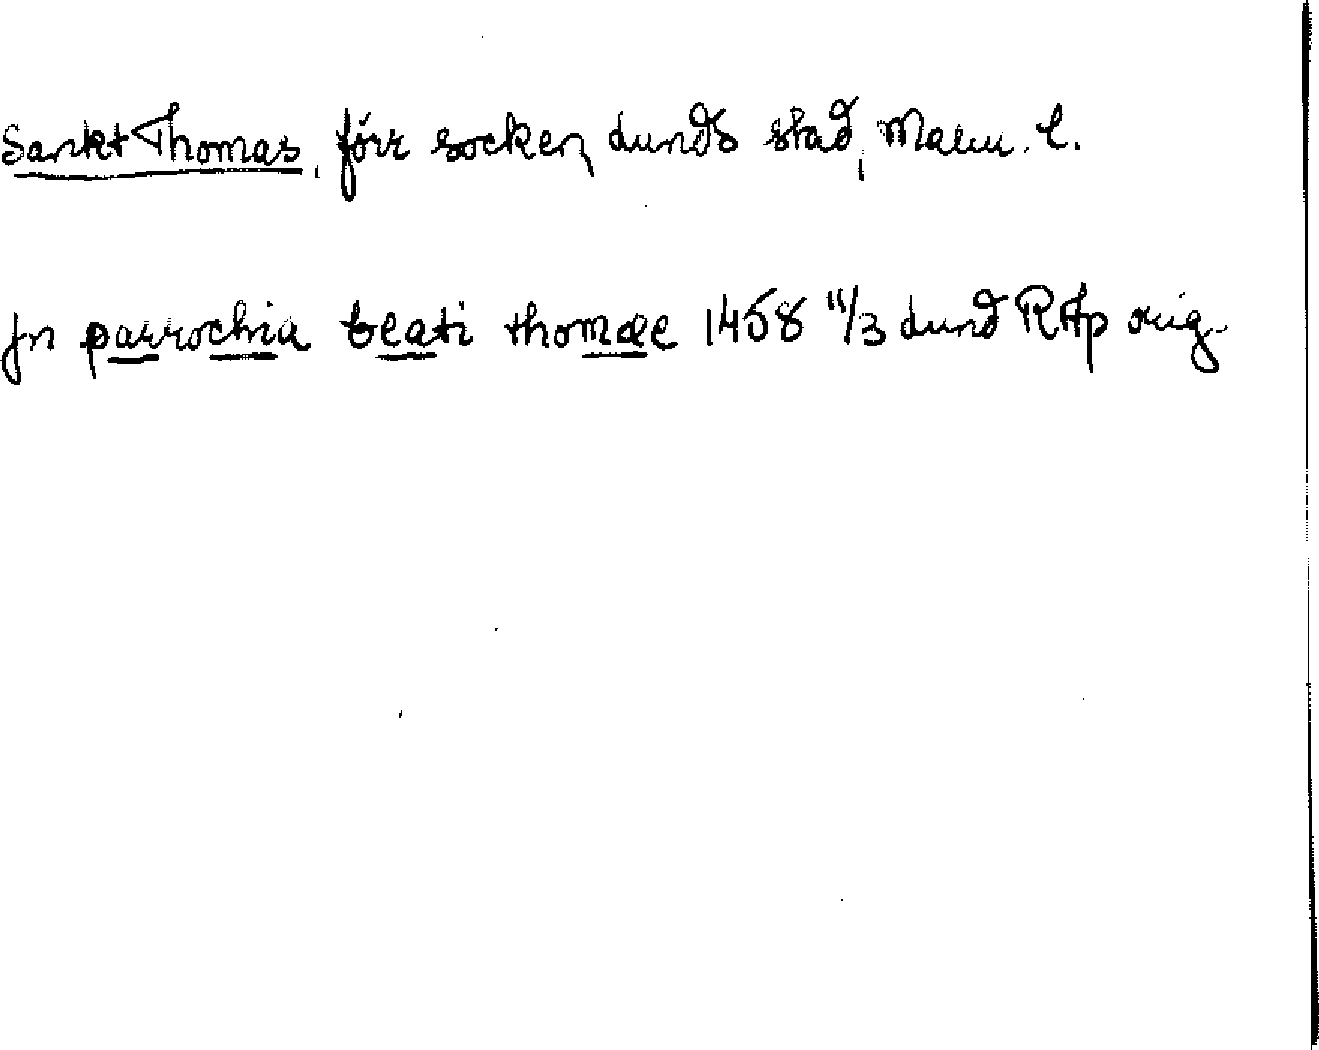 Sankt Thomas, förr socken, Lunds stad, Malm. l.
Jn parrochia beati thomae 1458 11/3 Lund RAp orig.